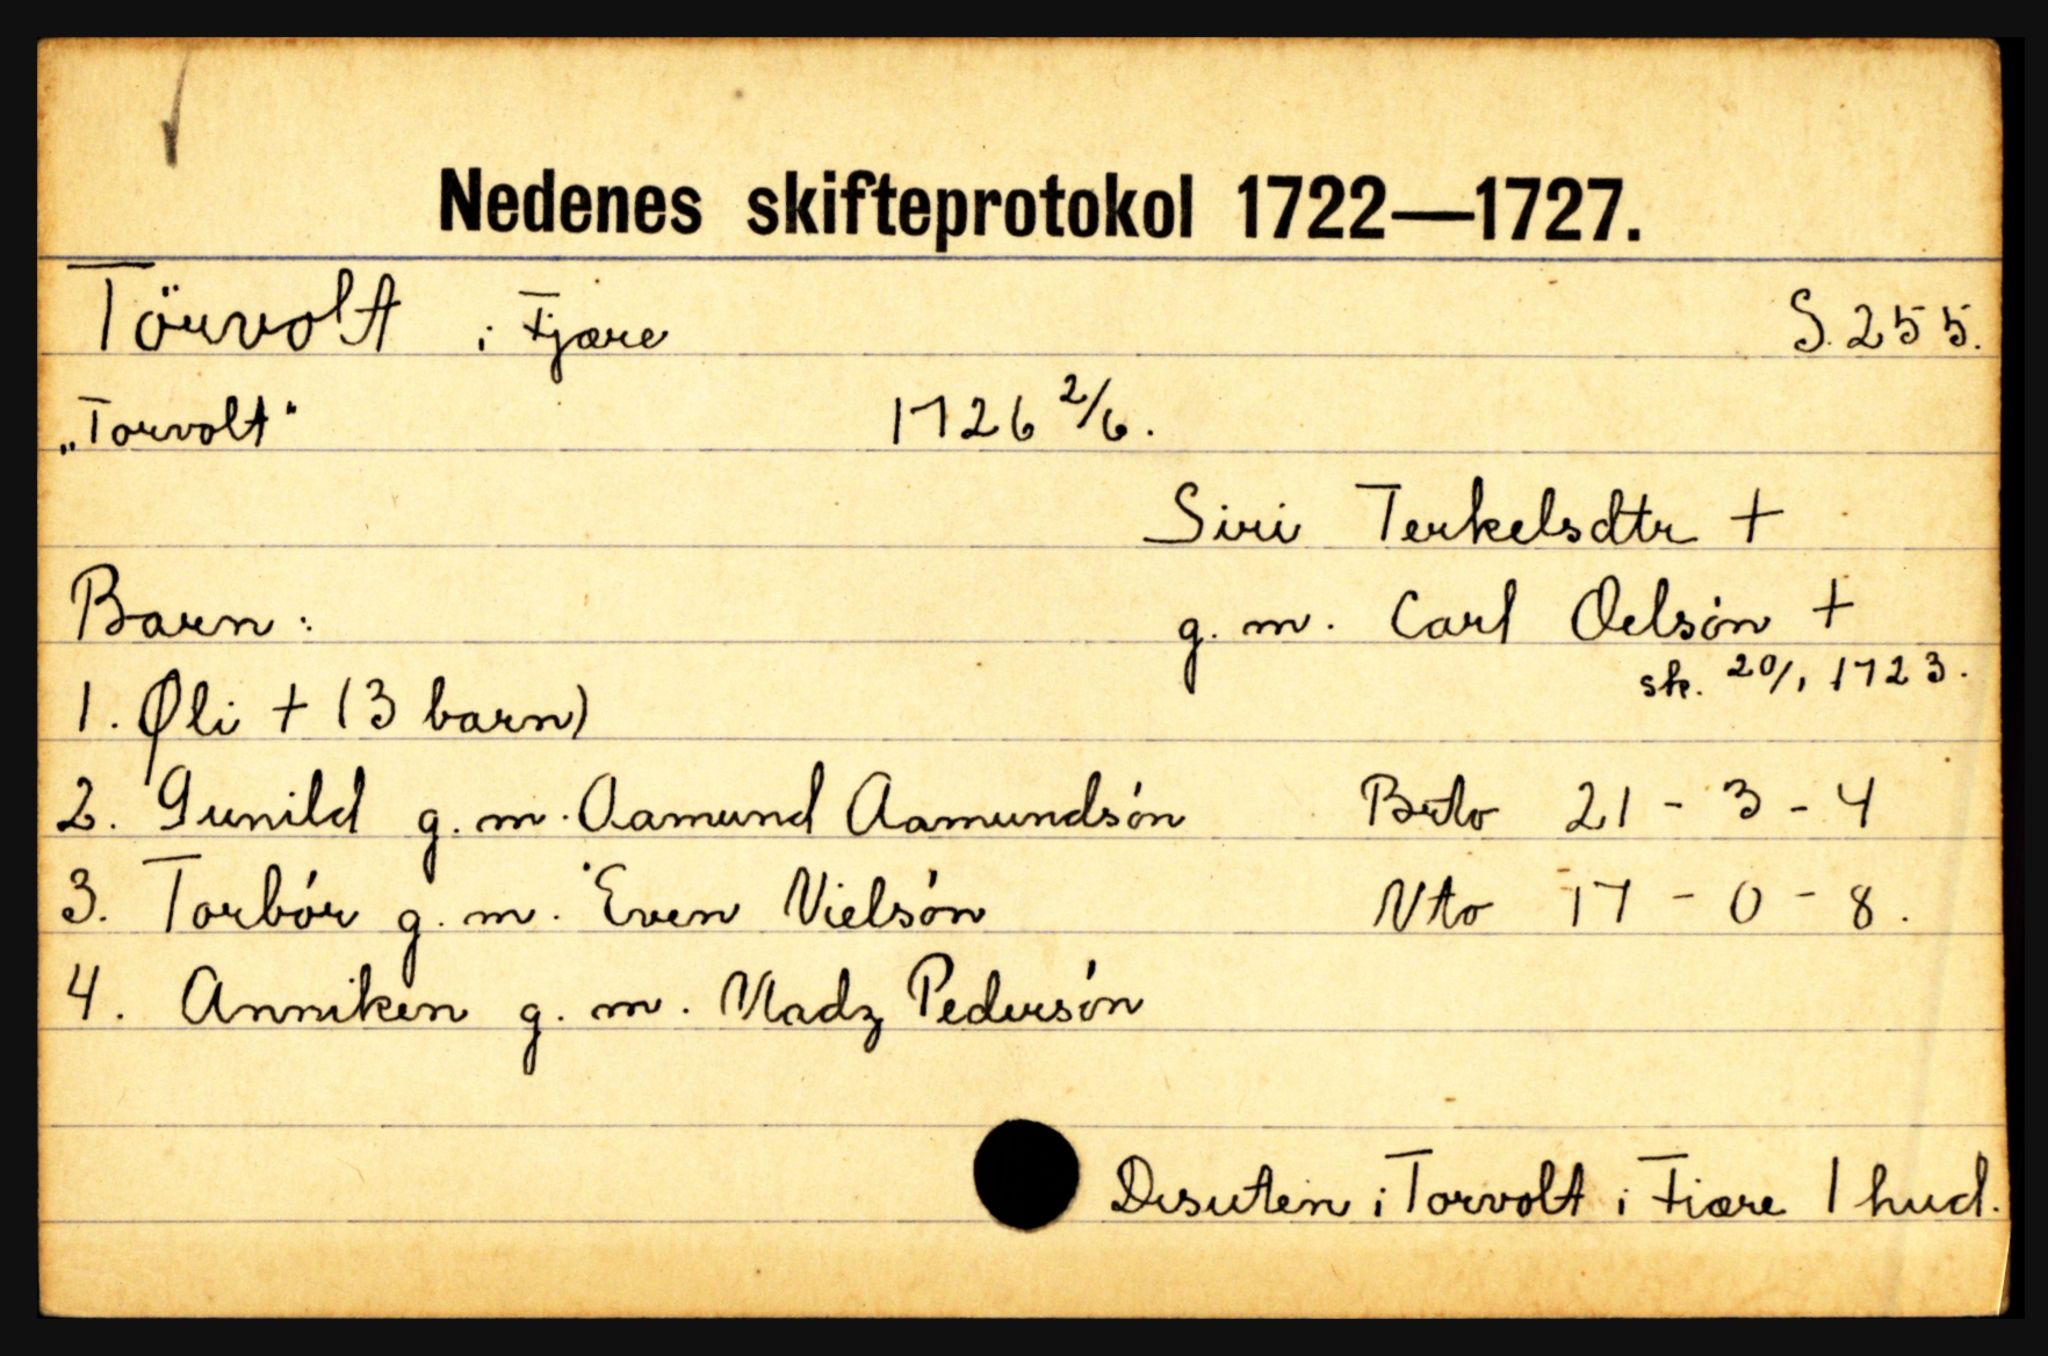 Nedenes skifteprotokol 1722—1727.
Törvolt i Fjære S. 255.
„Torvolt" 1726 2/6.
Siri Terkelsdtr +
Barn: g. m. Carl Oelsön +
sk. 20/1 1723.
1. Øli + (3 barn)
2. Gunild g. m. Aamund Aamundsön Brto 21 - 3 - 4
3. Torbór g. m. Even Nielsön Nto 17 - 0 - 8.
4. Anniken g. m. Madz Pedersön
Desuten i Torvolt i Fiære 1 hud.